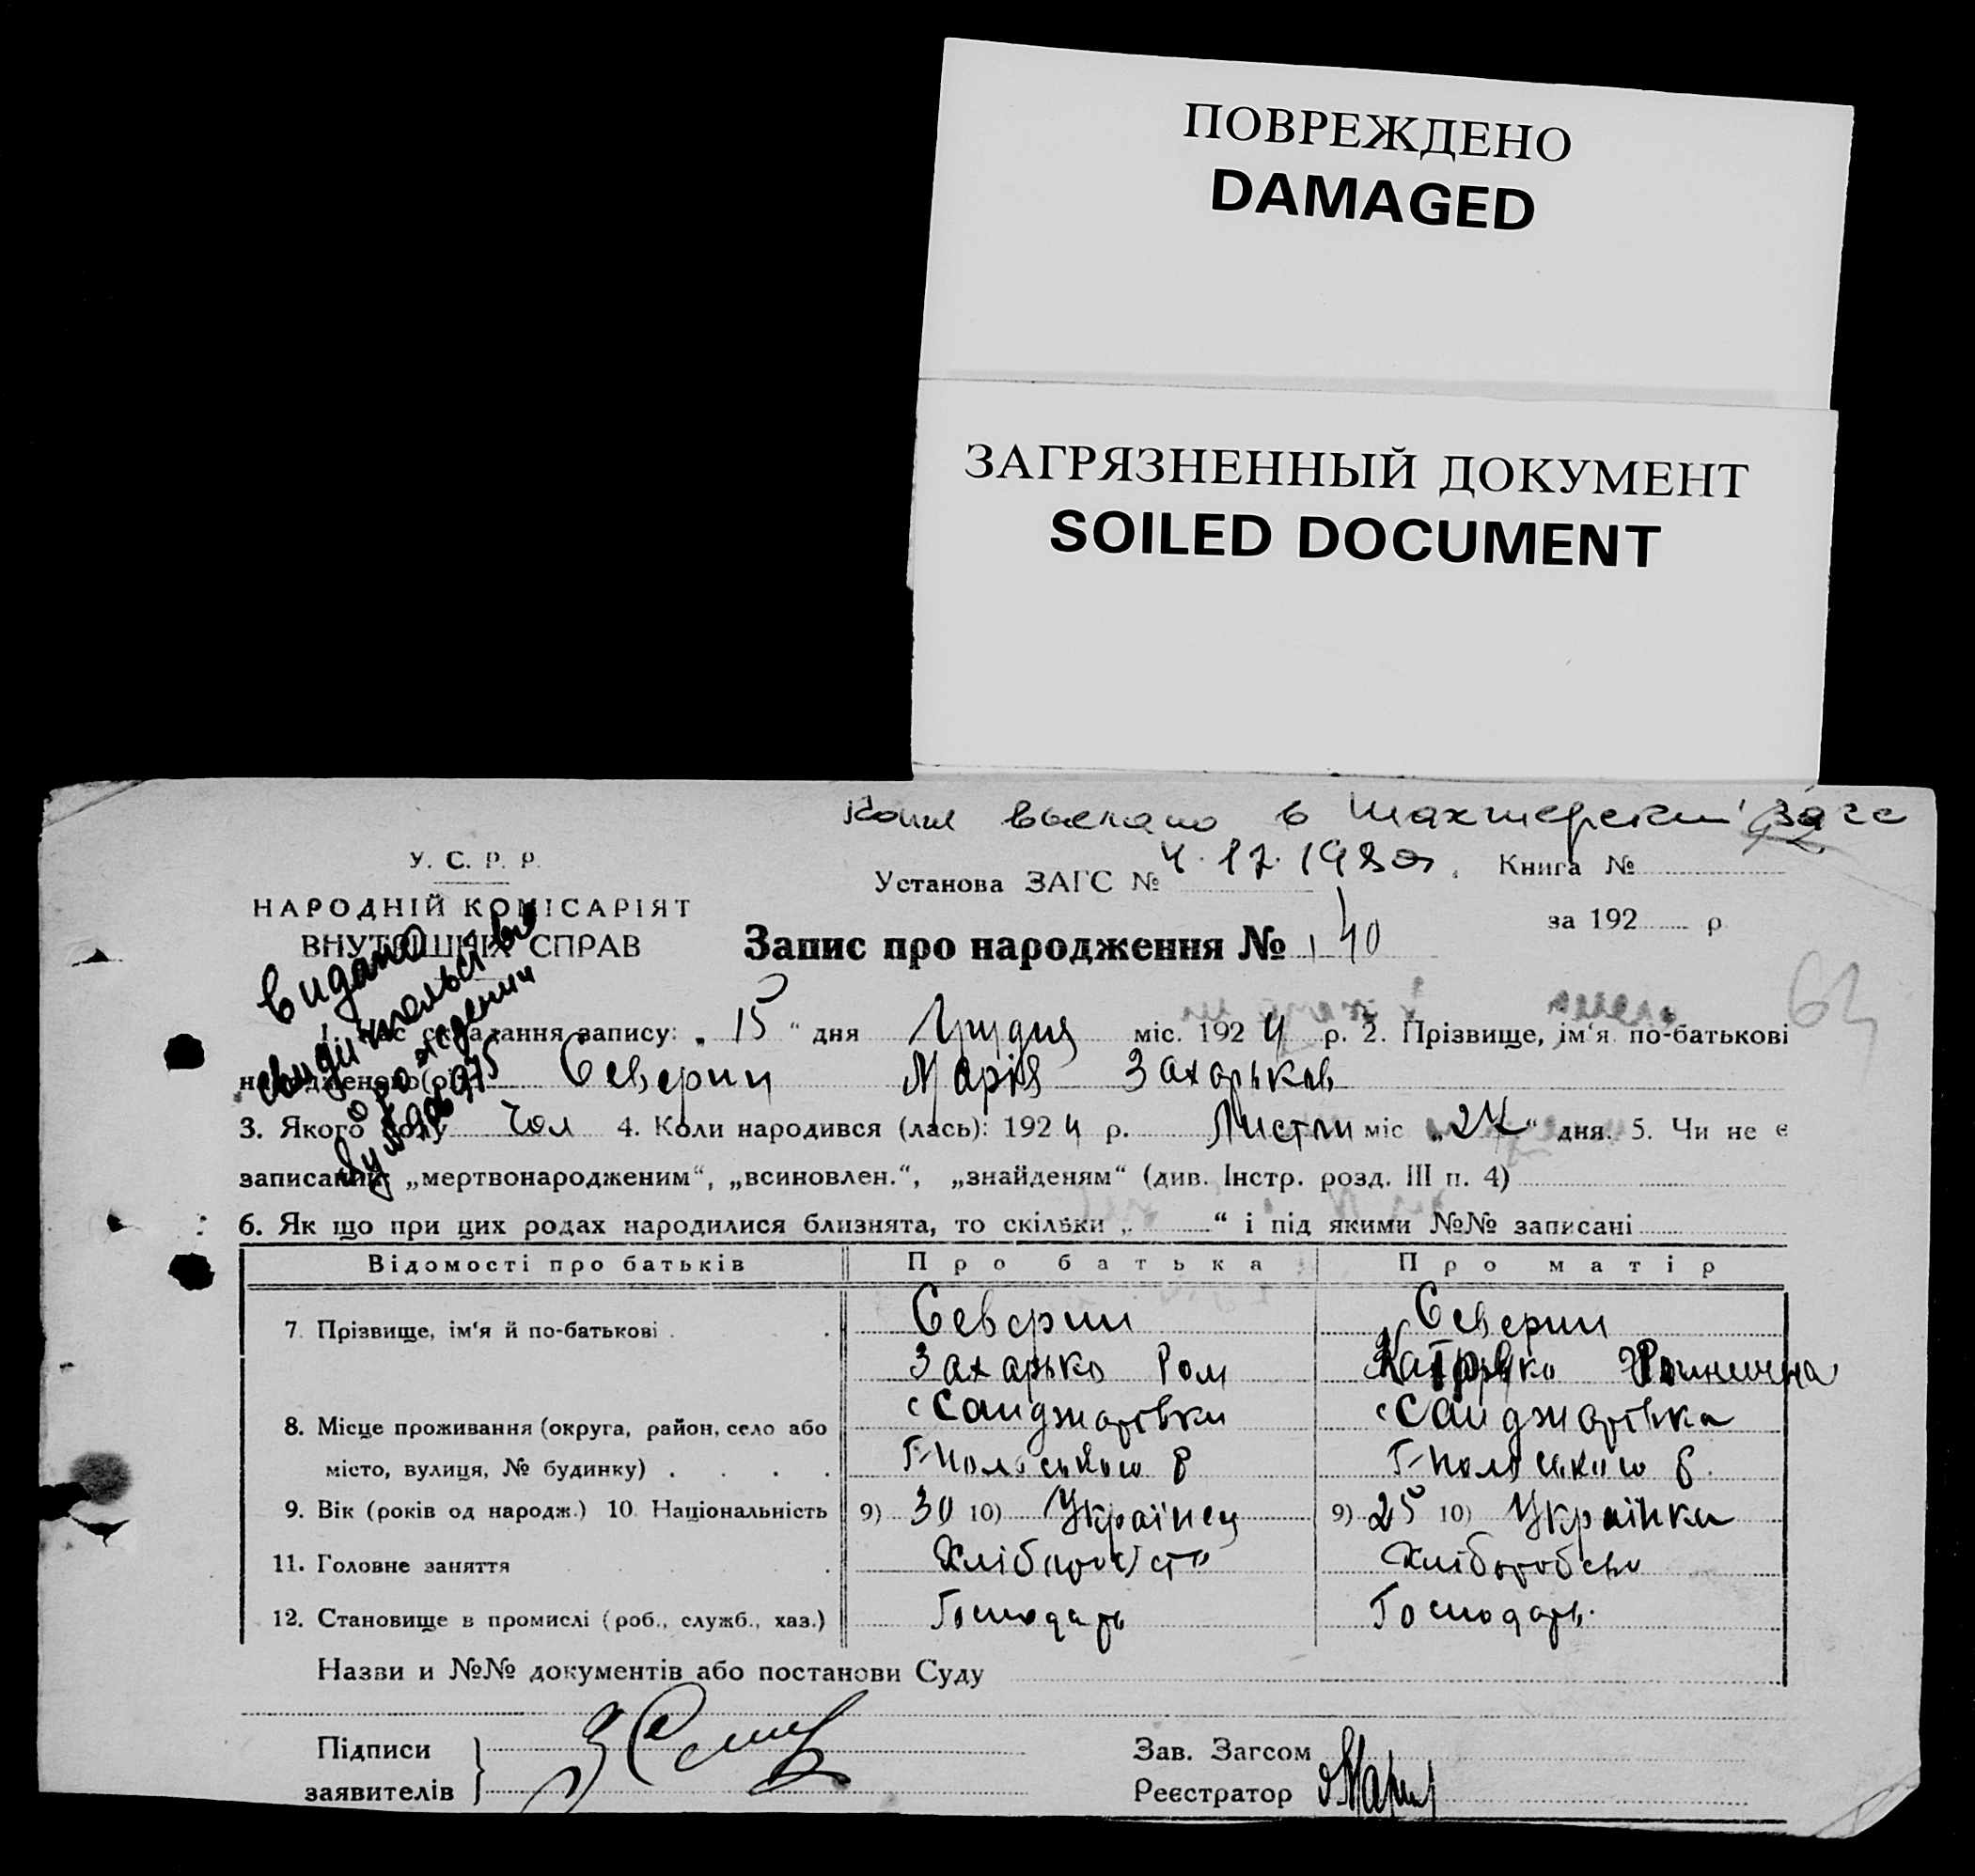 ПОВРЕЖДЕНО
DAMAGED
ЗАГРЯЗНЕННЫЙ ДОКУМЕНТ
SOILED DOCUMENT
в Шахтерский загс
4.12.1980г.
У. С. Р. Р.
НАРОДНІЙ КОМІСАРІЯТ
ВНУТРІШНІХ СПРАВ
Установа ЗАГС № Книга №
за 192 р.
Запис про народження № 140
64
видано
свидительство
о рождении
1. Час складання запису: „15“ дня Грудня міс. 1924 р. 2. Прізвище, ім‘я по-батькові
народженого(ої) Северин Марія Захарьков
3. Якого полу Чол 4. Коли народився (лась): 1924 р. Листп міс „27“ дня. 5. Чи не є
записаний „мертвонародженим“, „всиновлен.“, „знайденям“ (див. Інстр. розд. III п. 4)
6. Як що при цих родах народилися близнята, то скільки „ “ і під якими №№ записані
Відомості про батьків Про батька Про матір
7. Прізвище, ім‘я й по-батькові Северин Северин
Захарько Ром
8. Місце проживання (округа, район, село або с Санджарівки с Санджарівка
місто, вулиця, № будинку) Г-Польського р Г-Польського р.
9. Вік (років од народж.) 10. Національність 9) 30 10) Українец 9) 25 10) Українка
11. Головне заняття
12. Становище в промислі (роб., служб., хаз.) Господарь Господарь.
Назви и №№ документів або постанови Суду
Підписи
заявителів
Зав. Загсом
Реєстратор